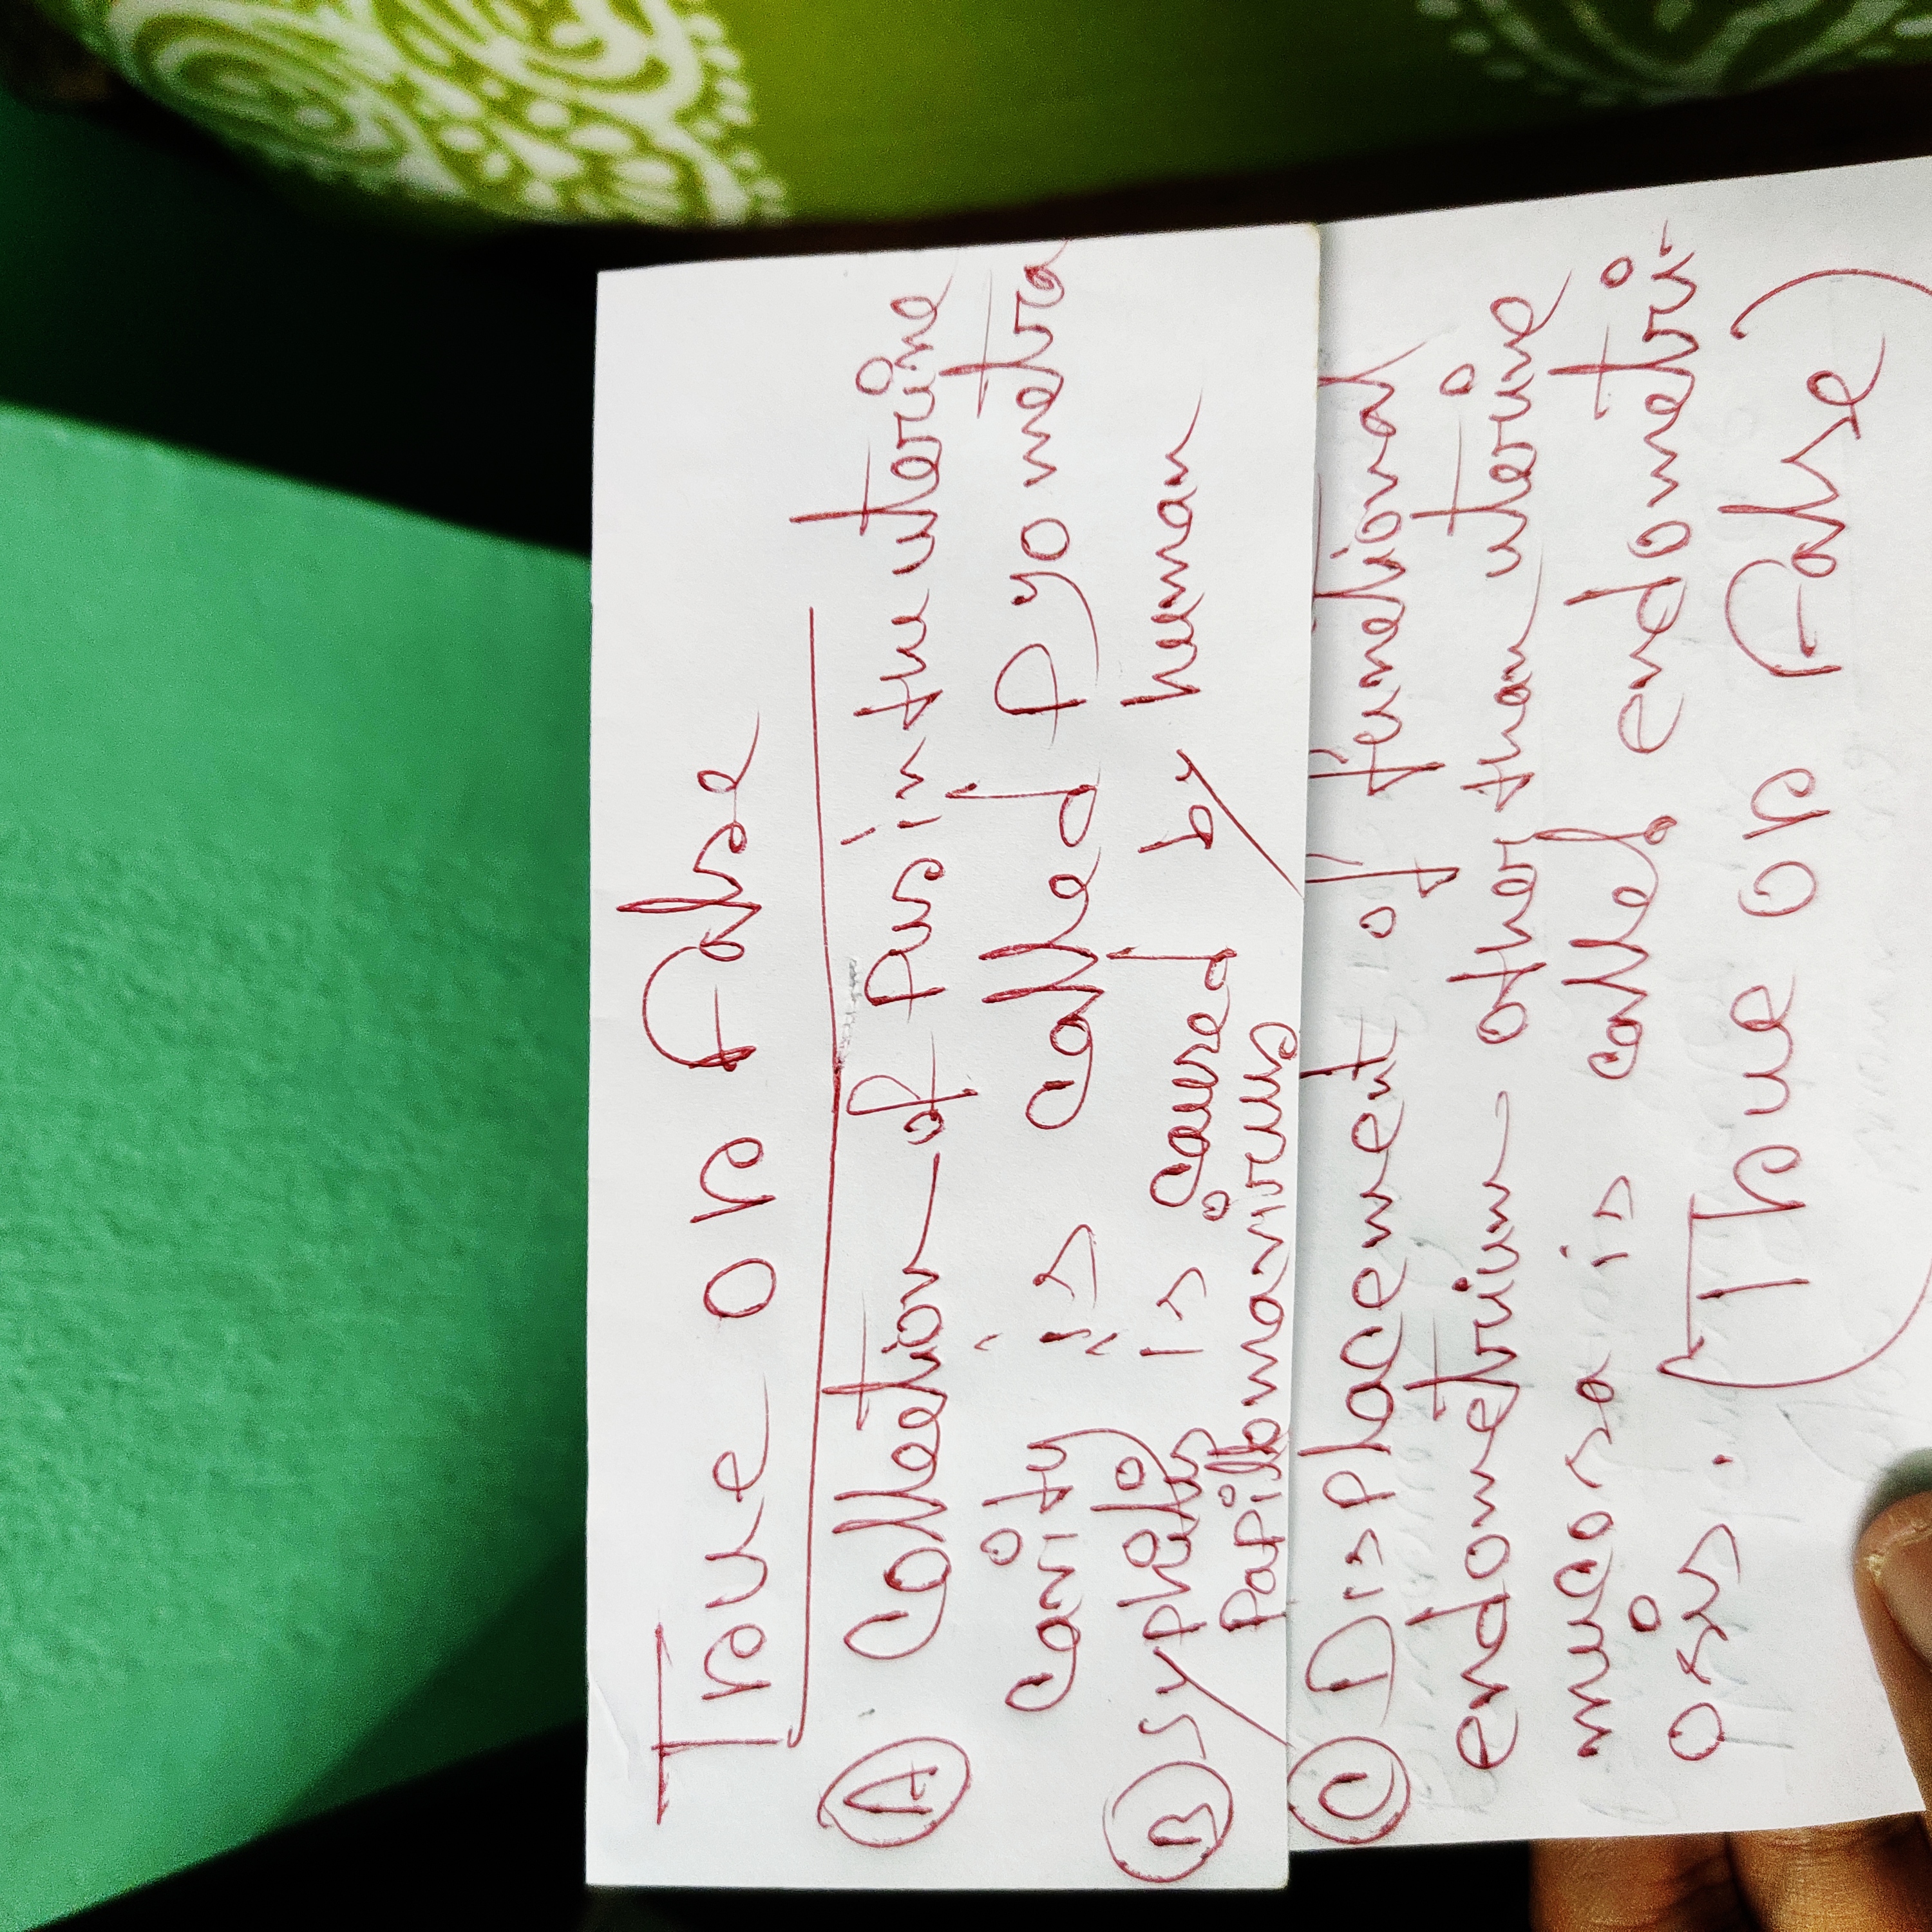 True or False
A Collection of Pus in the uterine
cavity is called Pyometra
B Syphilis is caused by human
Papillomavirus
C Displacement of functional
endometrium other than uterine
mucosa is called endometri-
osis. (True or False)